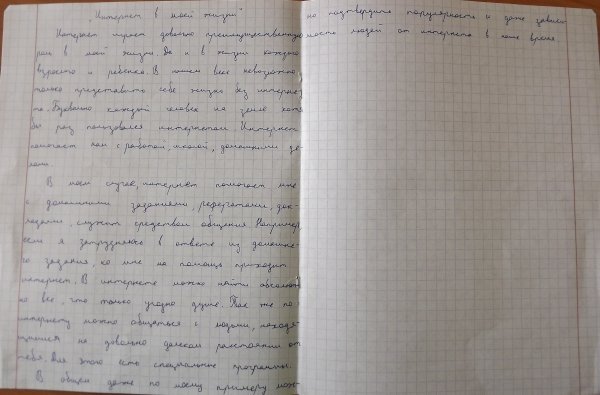 "Интернет в моей жизни"
Интернет играет довольно преимущественную
роль в моей жизни. Да и в жизни каждого
взрослого и ребёнка. В нашем веке невозможно
только представить себе жизнь без интерне-
та. Буквально каждый человек на земле хотя
бы раз пользовался интернетом. Интернет
помогает нам с работой, школой, домашними де-
лами.
В моём случае, интернет помогает мне
с домашними заданиями, рефератами, док-
ладами, служит средством общения. Например,
если я затрудняюсь в ответе из домашне-
го задания, ко мне на помощь приходит
интернет. В интернете можно найти абсолют-
но все, что только угодно душе. Так же по
интернету можно общаться с людьми, находя-
щимися на довольно далеком расстоянии от
тебя. Для этого есть специальные программы.
В общем даже по моему примеру мож-
но подтвердить популярность и даже зависи-
мость людей от интернета в наше время